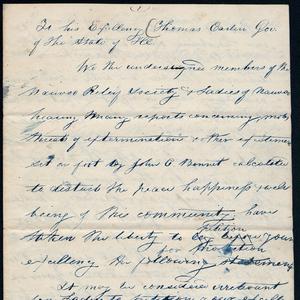 To his Excellency (Thomas Carlin Gov.
of the State of Ill.
We the undersigned members of the
Nauvoo Relief Society & Ladies of Nauvoo
hearing many reports concerning mob
threats of extermination & other
set on foot by John C Bennet calculated
to disturb the peace happiness & well
being of this community, have
taken the liberty to petition your
for protection
excellency the following
It may be considered irrelevant
for Ladies to petition your